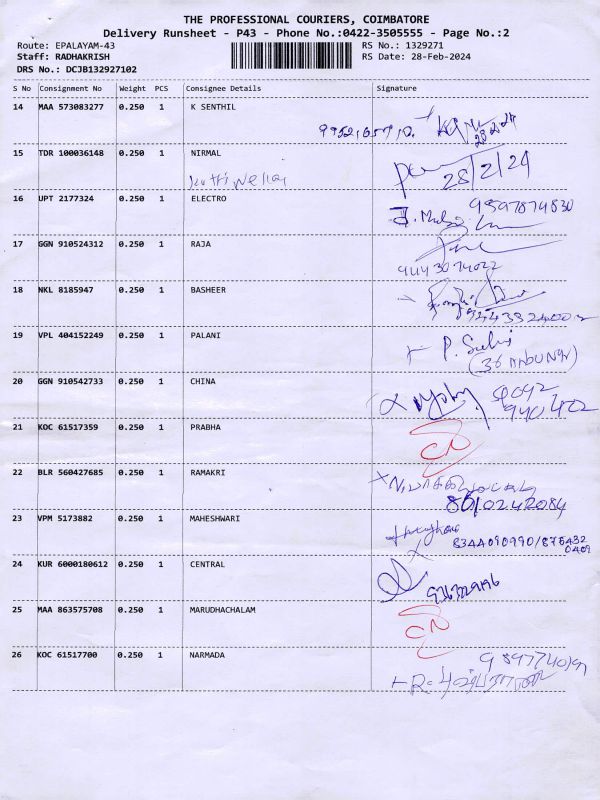 THE PROFESSIONAL COURIERS, COIMBATORE
Delivery Runsheet - P43 - Phone No.:0422-3505555 - Page No.:2
Route: EPALAYAM-43 RS No.: 1329271
Staff: RADHAKRISH RS Date: 28-Feb-2024
DRS No.: DCJB132927102
S No Consignment No Weight PCS Consignee Details Signature
14 MAA 573083277 0.250 1 K SENTHIL
28.2.24
15 TDR 100036148 0.250 1 NIRMAL
28/2/24
16 UPT 2177324 0.250 1 ELECTRO
9597874830
17 GGN 910524312 0.250 1 RAJA
9443074022
18 NKL 8185947 0.250 1 BASHEER
19 VPL 404152249 0.250 1 PALANI
20 GGN 910542733 0.250 1 CHINA
9092
940402
21 KOC 61517359 0.250 1 PRABHA
CN
22 BLR 560427685 0.250 1 RAMAKRI
8610242084
23 VPM 5173882 0.250 1 MAHESHWARI
24 KUR 6000180612 0.250 1 CENTRAL
25 MAA 863575708 0.250 1 MARUDHACHALAM
CN
26 KOC 61517700 0.250 1 NARMADA